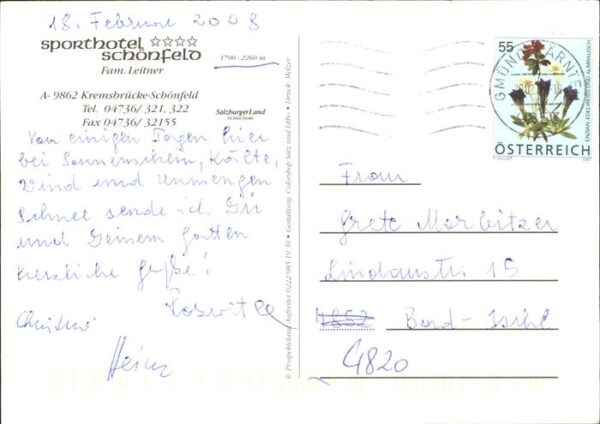 18. Februar 2008
sporthotel
schönfeld
Fam. Leitner
1700 - 2260 m
A- 9862 Kremsbrücke-Schönfeld
Tel. 04736/ 321, 322
Fax 04736/ 32155
SalzburgerLand
Von einigen Tagen hier
bei Sonnenschein, Kälte,
Wind und unmengen
Schnee sende ich Dir
und Deinem Gatten
herzliche Grüße!
Roswitha
Christine
Heinz
© Prospektverlag 0222/985 19 30 • Gestaltung, Colorshop Satz und Litho • Druck: Melzer
55
GMÜND KÄRNTEN
ÖSTERREICH
Frau
Grete Morbitzer
Lindaustr. 15
4852 Bad-Ischl
4820